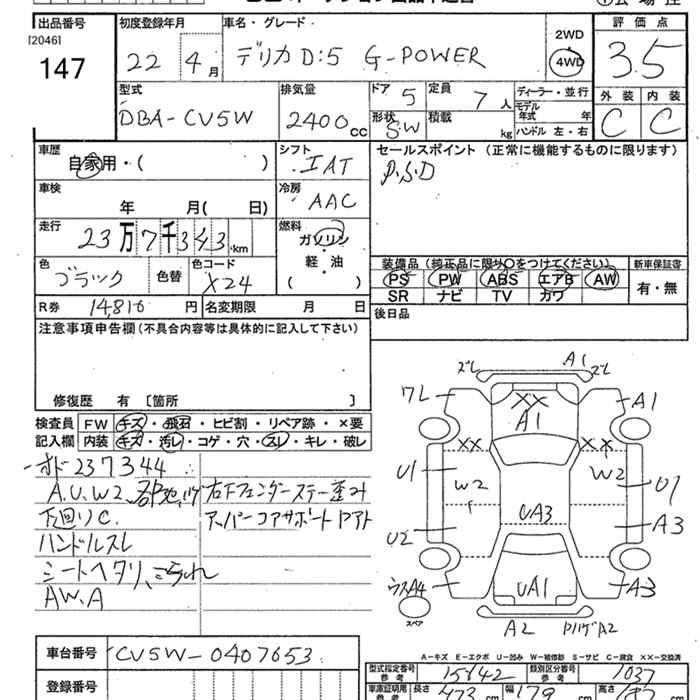 出品番号 初度登録年月 車名・グレード 評価点
[2046]
147 22 4月 デリカD:5 G-POWER 2WD 4WD 3.5
型式 排気量 ドア 定員 ディーラー・並行 外装 内装
DBA-CV5W 2400cc 5 7人 モデル年式 年
形状 積載
SW kg ハンドル 左・右 C C
車歴 シフト セールスポイント (正常に機能するものに限ります)
自家用・( ) IAT P.S.D
車検 冷房
年 月( 日) AAC
走行 燃料
23万7千343km ガソリン・軽・油 ( )
装備品 (純正品に限り○をつけてください) 新車保証書
色 色替 色コード PS PW ABS エアB AW 有・無
ブラック X24 SR ナビ TV カワ
R券 14,810円 名変期限 月 日 後日品
注意事項申告欄 (不具合内容等は具体的に記入して下さい)
修復歴 有 〔箇所 〕
検査員 FW キズ・飛石・ヒビ割・リペア跡・×要
記入欄 内装 キズ・汚レ・コゲ・穴・スレ・キレ・破レ
オド237344
A.U.W2 右下フェンダーステー歪み
下回りC. アッパーコアサポート
ハンドルスレ
シートヘタリ、
AW.A
A1
ワL A1 A1
XX XX XX
U1 W2 W2 U1
U2 UA3 A3
A4 UA1 A3
スペア
A2 A2
A-キズ E-エクボ U-凹み W-補修跡 S-サビ C-腐食 ××-交換済
車台番号 CV5W-0407653
型式指定番号 参考 15642 類別区分番号 参考 1037
登録番号
車庫証明用 参考 長さ 473cm 幅 179cm 高さ 187cm